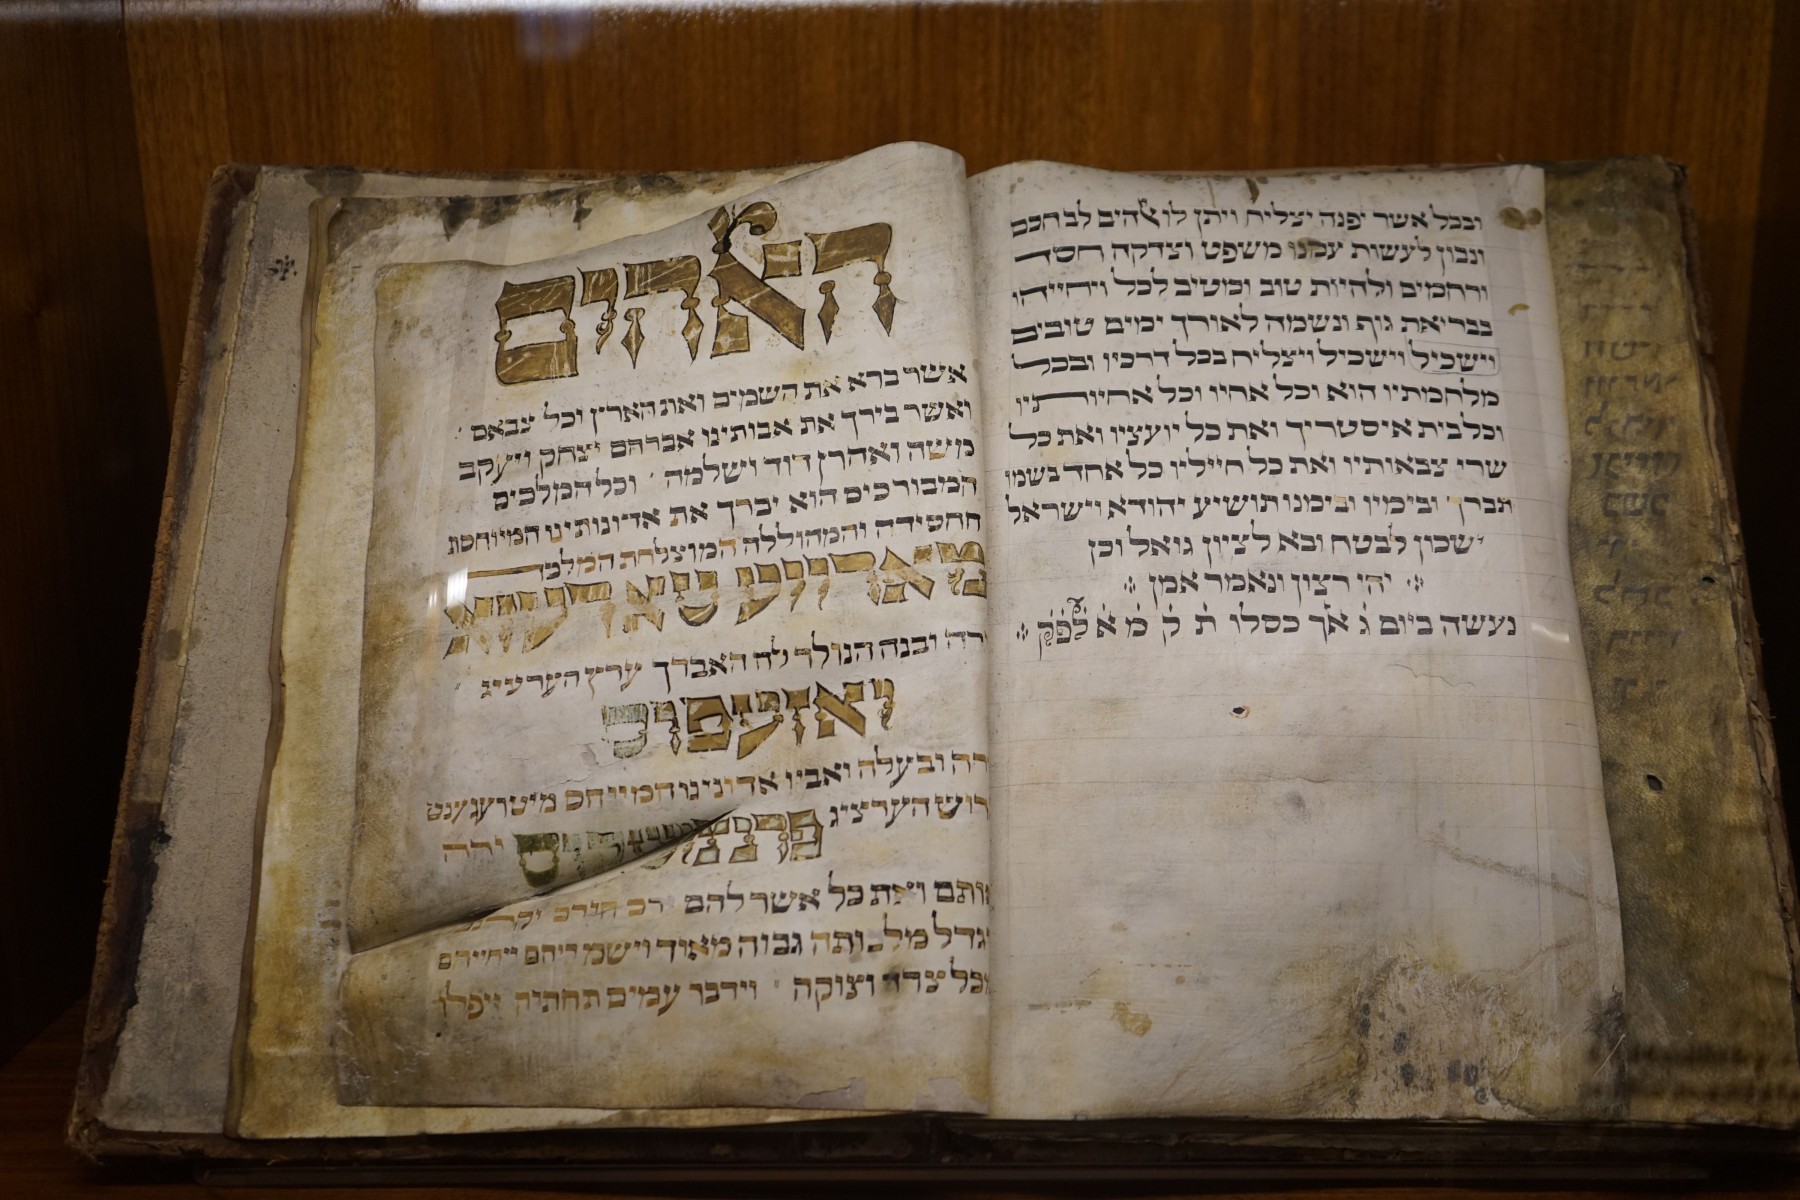 ובכל אשר יפנה יצליח ויתן לו ﭏהים לב חכם
ונבון לעשות עמנו משפט וצדקה חסד
ורחמים ולהיות טוב ומטיב לכל ויחייהו
בבריאת גוף ונשמה לאורך ימים טובים
וישכיל וישכיל ויצליח בכל דרכיו ובכל
מלחמתיו הוא וכל אחיו וכל אחיותיו
וכל בית איסטריך ואת כל יועציו ואת כל
שרי צבאותיו ואת כל חייליו כל אחד בשמו
תברך ובימיו ובימנו תושיע יהודא וישראל
ישכון לבטח ובא לציון גואל וכן
יהי רצון ונאמר אמן
נעשה ביום ג אך כסלו ת ק מ א לפק
הﭏהים
אשר ברא את השמים ואת הארץ וכל צבאם
ואשר בירך את אבותינו אברהם יצחק ויעקב
משה ואהרן דוד ושלמה וכל המלכים
המבורכים הוא יברך את אדונותינו המייוחסת
החסידה והמהוללה המוצלחת המלכה
מאריא טערעזיא
ירה ובנה הנולד לה האברך ערץ הערציג
יאזעפוס
ירה ובעלה ואביו אדונינו המייחס מיטרעגענט
גרוש הערציג
פרנציסקוס ירה
אותם ואת כל אשר להם
יגדל מלכותה גבוה מאוד וישמריהם ויחיהם
מכל צרה וצוקה וידבר עמים תחתיה ויפלו